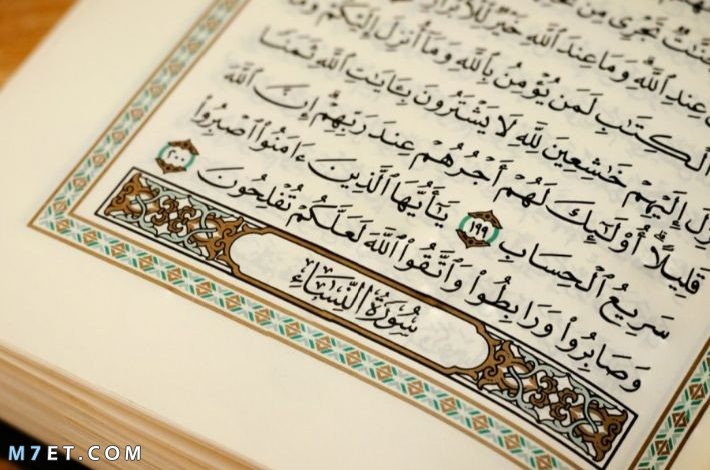 جَنَّٰتٌ تَجْرِى مِن
عِندِ ٱللَّهِ وَمَا عِندَ ٱللَّهِ خَيْرٌ لِّلْأَبْرَارِ
ٱلْكِتَٰبِ لَمَن يُؤْمِنُ بِٱللَّهِ وَمَآ أُنزِلَ إِلَيْكُمْ وَمَآ
إِلَيْهِمْ خَٰشِعِينَ لِلَّهِ لَا يَشْتَرُونَ بِـَٔايَٰتِ ٱللَّهِ ثَمَنًا
قَلِيلًا أُو۟لَٰٓئِكَ لَهُمْ أَجْرُهُمْ عِندَ رَبِّهِمْ إِنَّ ٱللَّهَ
سَرِيعُ ٱلْحِسَابِ ١٩٩ يَٰٓأَيُّهَا ٱلَّذِينَ ءَامَنُوا۟ ٱصْبِرُوا۟
وَصَابِرُوا۟ وَرَابِطُوا۟ وَٱتَّقُوا۟ ٱللَّهَ لَعَلَّكُمْ تُفْلِحُونَ ٢٠٠
سُورَةُ النِّسَاءِ
M7ET.COM